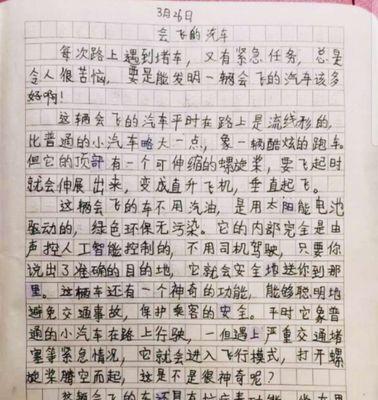 3月26日
会飞的汽车
每次路上遇到堵车，又有紧急任务，总是
令人很苦恼，要是能发明一辆会飞的汽车该多
好啊！
这辆会飞的汽车平时在路上是流线形的，
比普通的小汽车略大一点，象一辆酷炫的跑车。
但它的顶部有一个可伸缩的螺旋桨，要飞起时
就会伸展出来，变成直升飞机，垂直起飞。
这辆会飞的车不用汽油，是用太阳能电池
驱动的，绿色环保无污染。它的内部完全是由
声控人工智能控制的，不用司机驾驶，只要你
说出了准确的目的地，它就会安全地送你到那
里。这辆车还有一个神奇的功能，能够聪明地
避免交通事故，保护乘客的安全。平时它象普
通的小汽车在路上行驶，一但遇上严重交通堵
塞等紧急情况，它就会进入飞行模式，打开螺
旋桨腾空而起，这是不是很神奇呢？
这辆会飞的车还具有